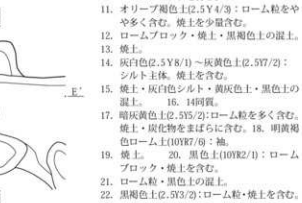 11. オリーブ褐色土(2.5Y4/3)：ローム粒をや
や多く含む。焼土を少量含む。
12. ロームブロック・焼土・黒褐色土の混土。
13. 焼土。
14. 灰白色(2.5Y8/1)～灰黄色土(2.5Y7/2)：
シルト主体。焼土を含む。
15. 焼土・灰白色シルト・黄灰色土・黒色土の
混土。 16. 14同質。
17. 暗灰黄色土(2.5Y5/2)：ローム粒を多く含む。
焼土・炭化物をまばらに含む。18. 明黄褐
色ローム土(10YR7/6)：袖。
19. 焼土。 20. 黒色土(10YR2/1)：ローム
ブロック・焼土を含む。
21. ローム粒・黒色土の混土。
22. 黒褐色土(2.5Y3/2)：ローム粒・焼土を含む。
E'